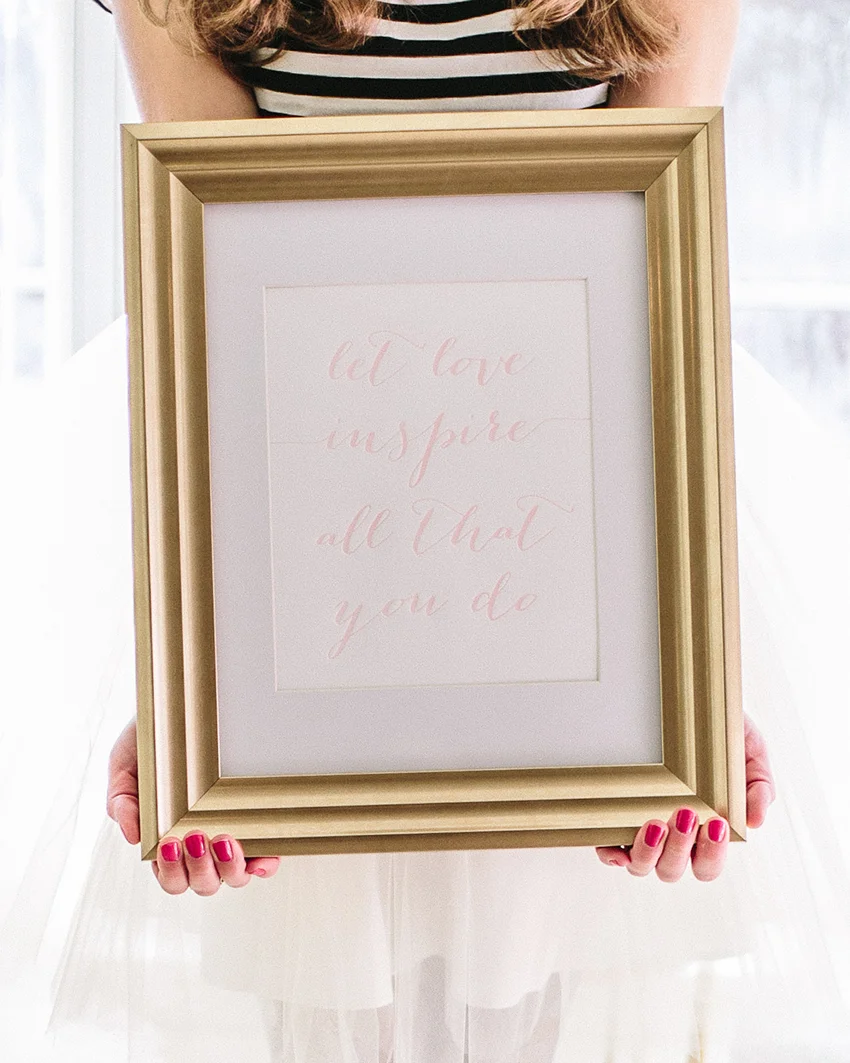 let love
inspire
all that
you do